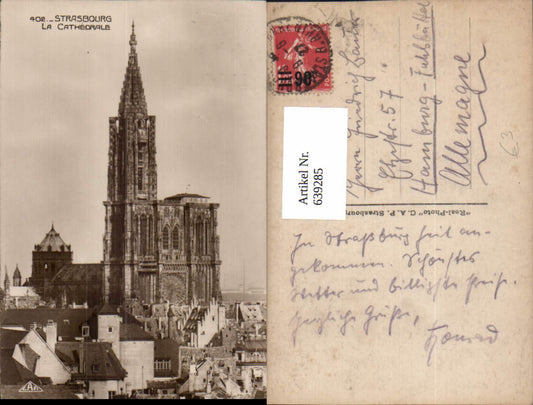 402 _ STRASBOURG
LA CATHÉDRALE
CAP
90c
Artikel Nr.
639285
Herrn Friedrich
57
Hamburg - Fuhlsbüttel
Hamburg -
Allemagne
63
"Real-Photo" C. A. P. Strasbourg
In Straßburg heil an-
gekommen. Schönstes
Wetter und billigste Preise.
Herzliche Grüße,
Konrad